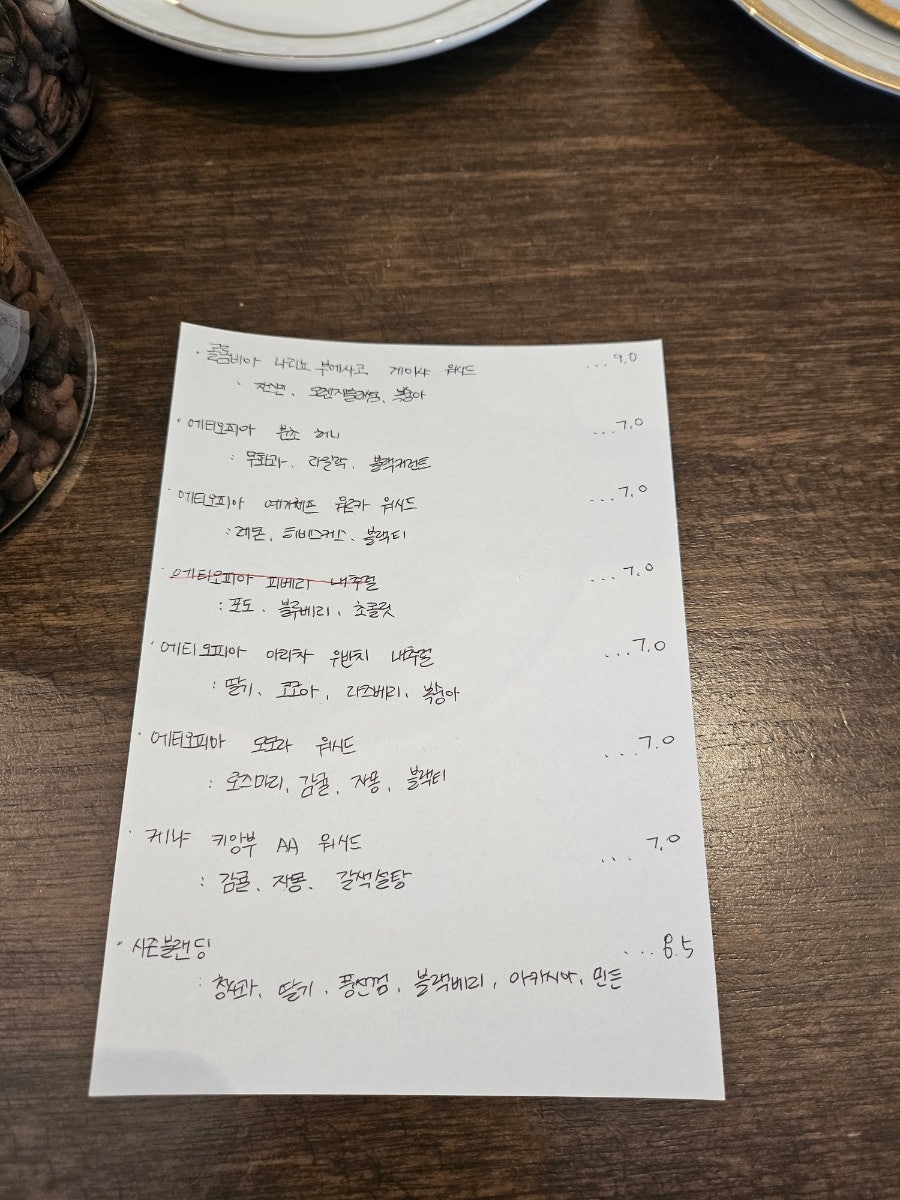 · 콜롬비아 나리뇨 부에사코 게이샤 워시드 ... 9.0
· 자스민, 오렌지블러썸, 복숭아
· 에티오피아 분쇼 허니 ... 7.0
: 무화과, 라일락, 블랙커런트
· 에티오피아 예가체프 워르카 워시드 ... 7.0
: 레몬, 히비스커스, 블랙티
· 에티오피아 피베리 내추럴 ... 7.0
: 포도, 블루베리, 초콜릿
· 에티오피아 아리차 우반치 내추럴 ... 7.0
: 딸기, 코코아, 라즈베리, 복숭아
· 에티오피아 모모라 워시드 ... 7.0
: 로즈마리, 감귤, 자몽, 블랙티
· 케냐 키앙부 AA 워시드 ... 7.0
: 감귤, 자몽, 갈색설탕
· 시즌블랜딩 ... 8.5
: 청사과, 딸기, 풍선껌, 블랙베리, 아카시아, 민트